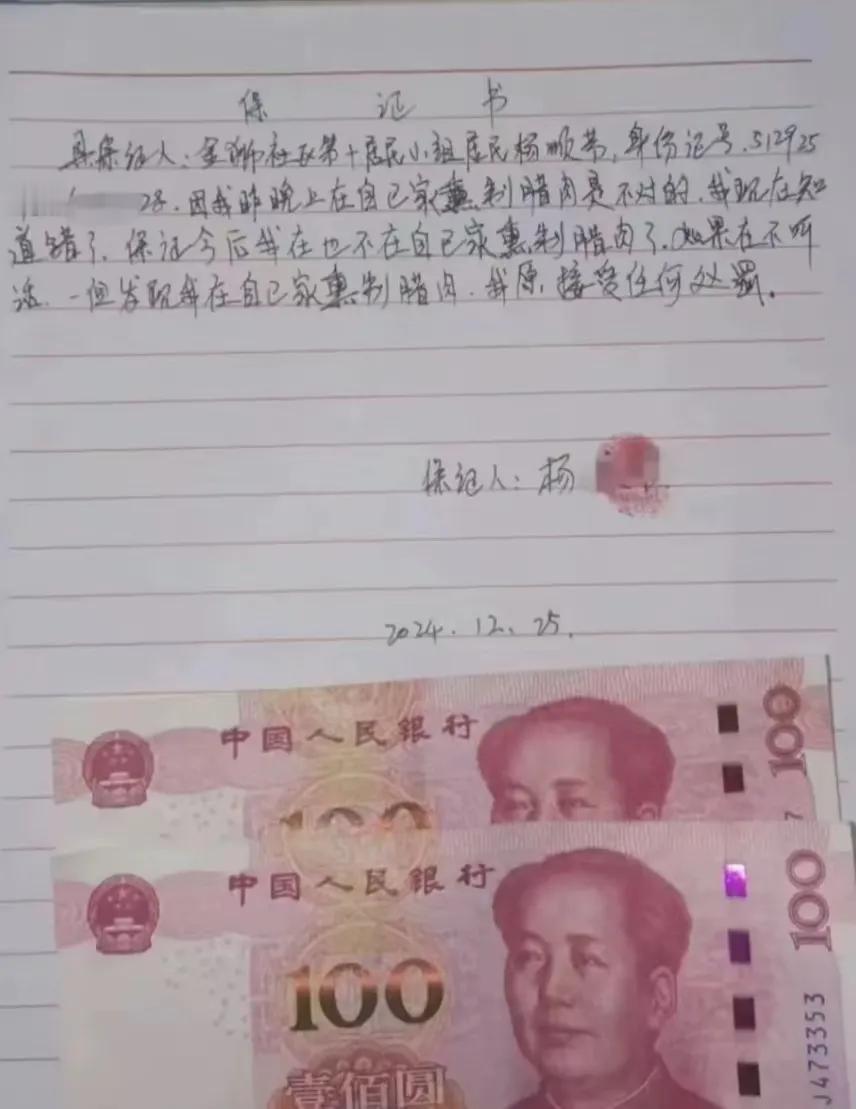 保 证 书
具保证人：金狮社区第十居民小组居民杨顺芳，身份证号.512925
28.因我昨晚上在自己家熏制腊肉是不对的.我现在知
道错了.保证今后我在也不在自己家熏制腊肉了.如果在不听
话.一但发现我在自己家熏制腊肉.我原接受任何处罚。
保证人：杨
2024.12.25.
中国人民银行
100
100
7
中国人民银行
100
100
壹佰圆
J473353